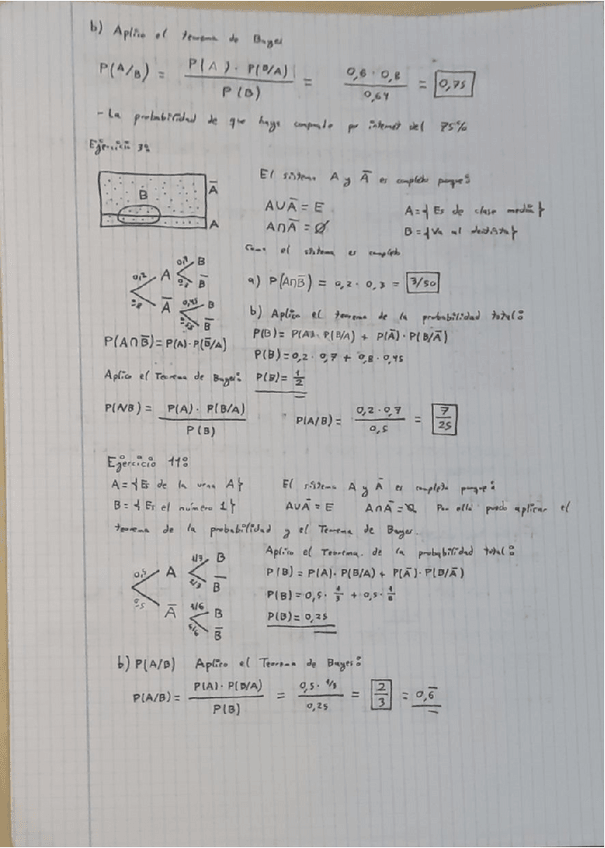 b) Aplico el teorema de Bayes
P(A/B) = P(A) · P(B/A) / P(B) = 0,6 · 0,8 / 0,64 = 0,75
- La probabilidad de que haya comprado por internet del 75%
Ejercicio 3:
B Ā A
El sistema A y Ā es completo porque:
A∪Ā = E
A∩Ā = Ø
A = { Es de clase media }
B = { Va al dentista }
Como el sistema es completo
0,2 A 0,7 B 0,3 B̄
0,8 Ā 0,45 B B̄
a) P(A∩B̄) = 0,2 · 0,3 = 3/50
b) Aplico el teorema de la probabilidad total:
P(A∩B̄) = P(A) · P(B̄/A)
P(B) = P(A) · P(B/A) + P(Ā) · P(B/Ā)
P(B) = 0,2 · 0,7 + 0,8 · 0,45
Aplico el Teorema de Bayes:
P(B) = 1/2
P(A/B) = P(A) · P(B/A) / P(B)
P(A/B) = 0,2 · 0,7 / 0,5 = 7/25
Ejercicio 11:
A = { Es de la urna A }
El sistema A y Ā es completo porque:
B = { Es el número 1 }
A∪Ā = E A∩Ā = Ø Por ello puedo aplicar el
teorema de la probabilidad y el Teorema de Bayes.
Aplico el Teorema de la probabilidad total:
0,5 A 1/3 B 2/3 B̄
0,5 Ā 1/6 B 5/6 B̄
P(B) = P(A) · P(B/A) + P(Ā) · P(B/Ā)
P(B) = 0,5 · 1/3 + 0,5 · 1/6
P(B) = 0,25
b) P(A/B) Aplico el Teorema de Bayes:
P(A/B) = P(A) · P(B/A) / P(B) = 0,5 · 1/3 / 0,25 = 2/3 = 0,6̄